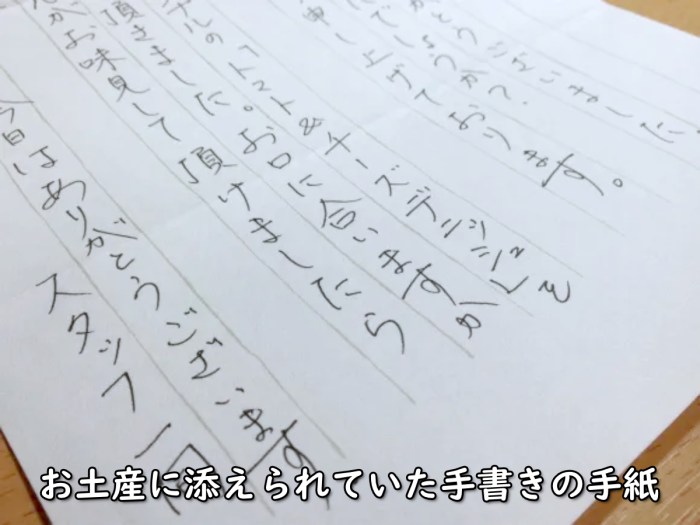 とうございました
でしょうか?
申し上げております。
トマト&チーズデニッシュを
頂きました。お口に合いますか
がお味見して頂けましたら
今日はありがとうございます
スタッフ一同
お土産に添えられていた手書きの手紙